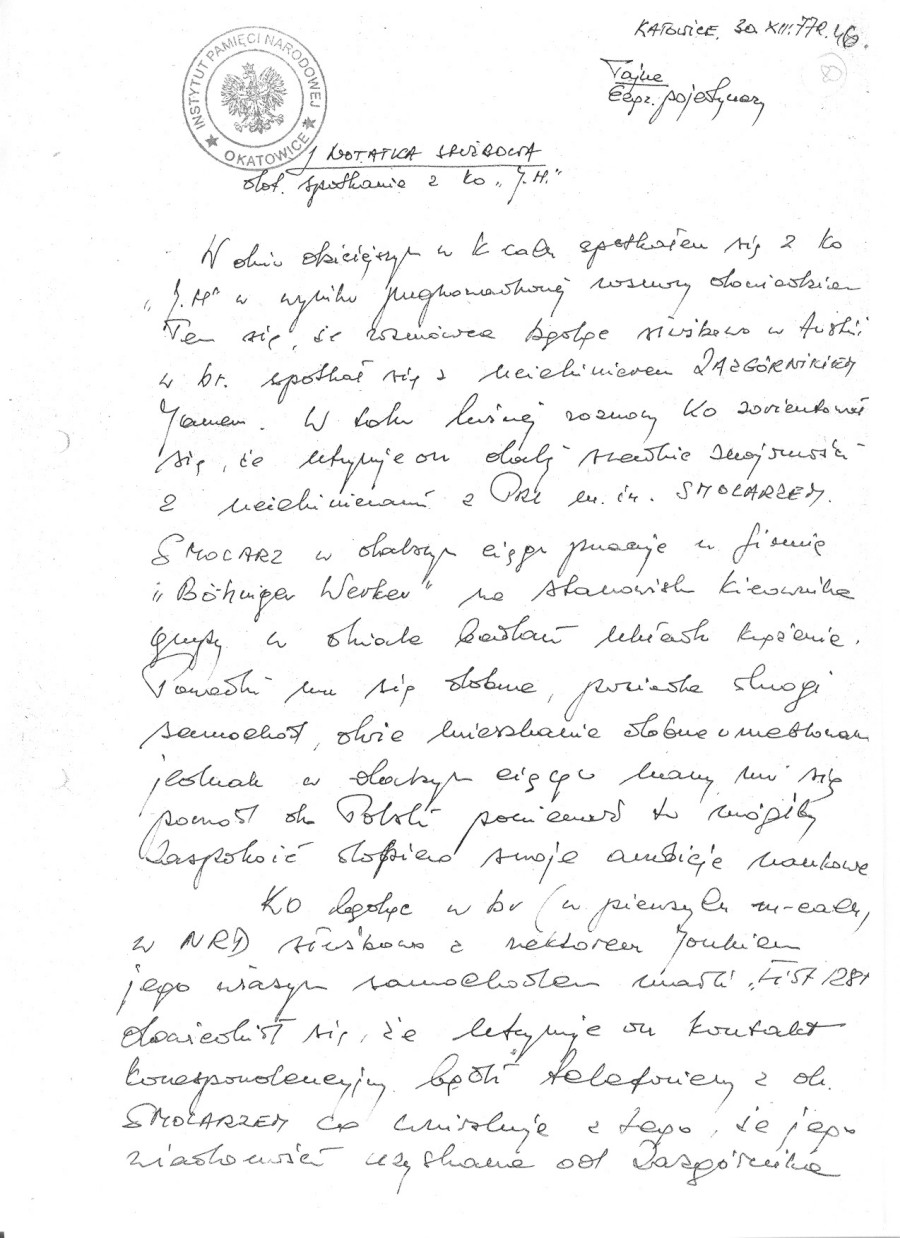 KATOWICE, 30 XII. 77R.
46
80
Tajne
Egz. pojedynczy
INSTYTUT PAMIĘCI NARODOWEJ
OKATOWICE
NOTATKA SŁUŻBOWA
dot. spotkania z ko "J.H."
W dniu dzisiejszym w spotkałem się z ko
"J.H" w wyniku rozmowy dowiedziałem
się, że rozmówca będąc służbowo w Austrii
w br. spotkał się z uciekinierem ZAZGÓRNIKIEM
Janem. W toku luźnej rozmowy KO zorientował
się, że utrzymuje on dalej znajomości
z uciekinierami z PRL m. in. SMOLARZEM.
SMOLARZ w dalszym ciągu pracuje w firmie
"Böhinger Werken" na stanowisku Kierownika
grupy w dziale badań układu krążenia.
Powodzi mu się dobrze, posiada drugi
samochód, dwie mieszkania dobrze umeblowane
jednak w dalszym ciągu marzy mu się
powrót do Polski ponieważ tu mógłby
zaspokoić dopiero swoje ambicje naukowe
KO będąc w br (w pierwszych m-cach)
w NRD służbowo z rektorem Jonkiem
jego własnym samochodem marki "Fiat 128"
dowiedział się, że utrzymuje on kontakt
korespondencyjny bądź telefoniczny z ob.
SMOLARZEM co wnioskuje z tego, że jego
wiadomości uzyskane od Zazgórnika